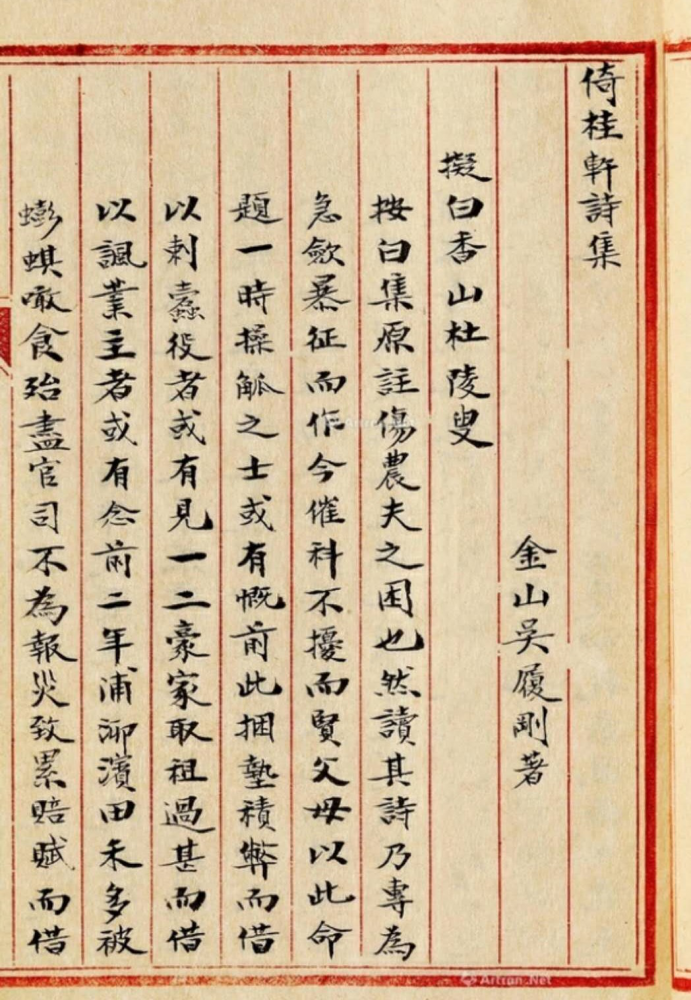 倚桂軒詩集
金山吳履剛著
擬白香山杜陵叟
按白集原註傷農夫之困也然讀其詩乃專為
急斂暴征而作今催科不擾而賢父母以此命
題一時操觚之士或有慨前此捆墊積弊而借
以刺蠹役者或有見一二豪家取租過甚而借
以諷業主者或有念前二年浦泖濱田禾多被
蟛蜞噉食殆盡官司不為報災致累賠賦而借
Artron.Net